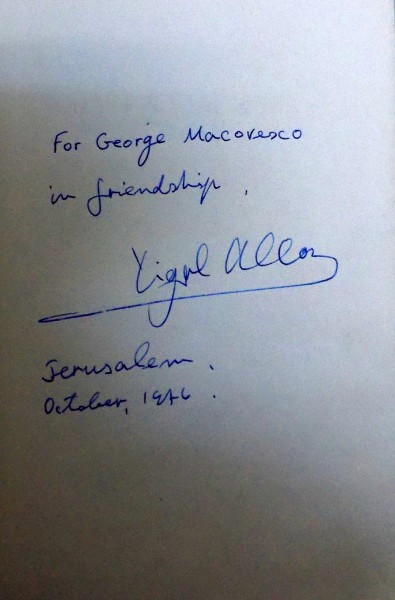 For George Macovesco
in friendship,
Yigal Allon
Jerusalem.
October, 1976.